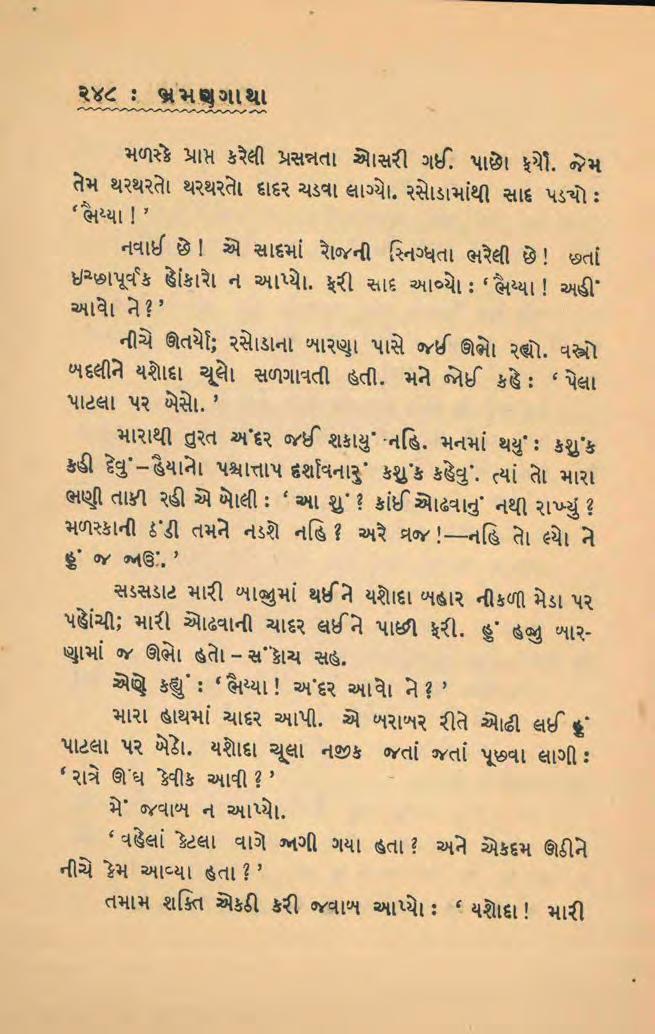 ૨૪૮ : ભ્રમણગાથા
મળસ્કે પ્રાપ્ત કરેલી પ્રસન્નતા ઓસરી ગઈ. પાછો ફર્યો. જેમ
તેમ થરથરતો થરથરતો દાદર ચડવા લાગ્યો. રસોડામાંથી સાદ પડ્યો :
‘ભૈય્યા ! ’
નવાઈ છે ! એ સાદમાં રોજની સ્નિગ્ધતા ભરેલી છે ! છતાં
ઇચ્છાપૂર્વક હોંકારો ન આપ્યો. ફરી સાદ આવ્યો : ‘ભૈય્યા ! અહીં
આવો ને ? ’
નીચે ઊતર્યો; રસોડાના બારણા પાસે જઈ ઊભો રહ્યો. વસ્ત્રો
બદલીને યશોદા ચૂલો સળગાવતી હતી. મને જોઈ કહે : ‘પેલા
પાટલા પર બેસો. ’
મારાથી તુરત અંદર જઈ શકાયું નહિ. મનમાં થયું : કશુંક
કહી દેવું – હૈયાનો પશ્ચાત્તાપ દર્શાવનારું કશુંક કહેવું. ત્યાં તો મારા
ભણી તાકી રહી એ બોલી : ‘ આ શું ? કાંઈ ઓઢવાનું નથી રાખ્યું ?
મળસ્કાની ઠંડી તમને નડશે નહિ ? અરે વ્રજ !—નહિ તો લ્યો ને
હું જ જાઉં. ’
સડસડાટ મારી બાજુમાં થઈને યશોદા બહાર નીકળી મેડા પર
પહોંચી; મારી ઓઢવાની ચાદર લઈને પાછી ફરી. હું હજુ બાર-
ણામાં જ ઊભો હતો – સંકોચ સહ.
એણે કહ્યું : ‘ભૈય્યા ! અંદર આવો ને ? ’
મારા હાથમાં ચાદર આપી. એ બરાબર રીતે ઓઢી લઈ હું
પાટલા પર બેઠો. યશોદા ચૂલા નજીક જતાં જતાં પૂછવા લાગી :
‘રાત્રે ઊંઘ કેવીક આવી ? ’
મેં જવાબ ન આપ્યો.
‘વહેલાં કેટલા વાગે જાગી ગયા હતા ? અને એકદમ ઊઠીને
નીચે કેમ આવ્યા હતા ? ’
તમામ શક્તિ એકઠી કરી જવાબ આપ્યો : ‘ યશોદા ! મારી